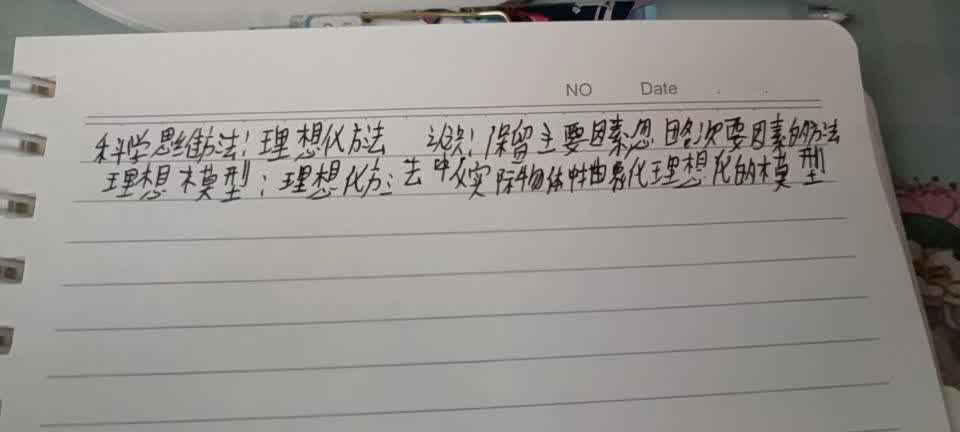 NO Date
科学思维方法:理想化方法 识:保留主要因素忽略次要因素的方法
理想模型:理想化方法中从实际物体中抽象化理想化的模型